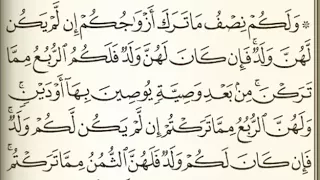 ۞ وَلَكُمْ نِصْفُ مَا تَرَكَ أَزْوَٰجُكُمْ إِن لَّمْ يَكُن
لَّهُنَّ وَلَدٌ ۚ فَإِن كَانَ لَهُنَّ وَلَدٌ فَلَكُمُ ٱلرُّبُعُ مِمَّا
تَرَكْنَ ۚ مِنۢ بَعْدِ وَصِيَّةٍ يُوصِينَ بِهَآ أَوْ دَيْنٍ ۚ
وَلَهُنَّ ٱلرُّبُعُ مِمَّا تَرَكْتُمْ إِن لَّمْ يَكُن لَّكُمْ وَلَدٌ ۚ
فَإِن كَانَ لَكُمْ وَلَدٌ فَلَهُنَّ ٱلثُّمُنُ مِمَّا تَرَكْتُم ۚ